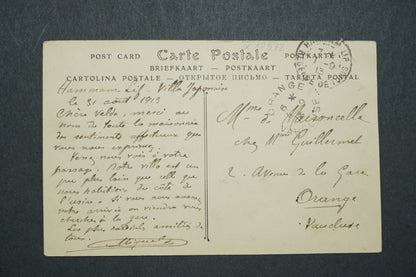 POST CARD Carte Postale POSTKARTE
BRIEFKAART — POSTKAART
CARTOLINA POSTALE — ОТКРЫТОЕ ПИСЬМО — TARJETA POSTAL
Hammam Lif. Villa Japonaise
le 31 août 1913
Chère Vella, merci au
nom de toute la maisonnée
des sentiments affectueux que
vous nous exprimez.
Venez nous voir à votre
passage. Notre villa est un
peu plus loin que celle que
nous habitions du côté de
l'usine. Si vous nous annoncez
votre arrivée on viendra vous
chercher à la gare.
Les plus cordiales amitiés de
tous.
Mme de Maisoncella
chez Mme Guillermet
2. Avenue de la Gare
Orange
Vaucluse
ORANGE